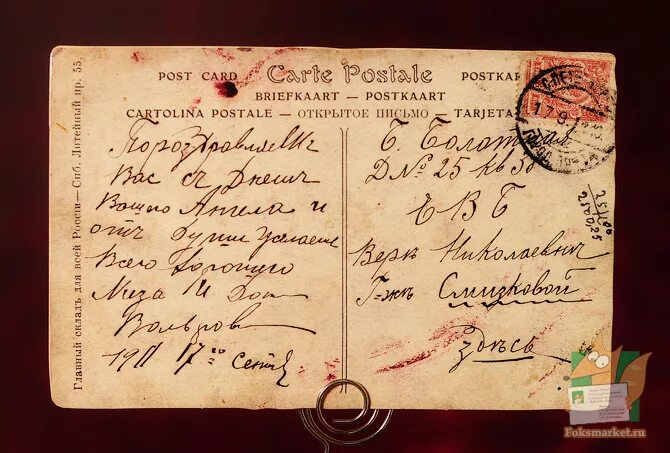 POST CARD Carte Postale POSTKAR
BRIEFKAART — POSTKAART
CARTOLINA POSTALE — ОТКРЫТОЕ ПИСЬМО — TARJETA
Главный складъ для всей России—Спб. Литейный пр. 55.
Пороздравляемъ
Васъ съ Днемъ
Вашего Ангела и
отъ души желаемъ
Всего хорошего
1911 17го Сентя
Б. Болот ая
Д№ 25 кв 30
ЕВБ
Верѣ Николаевнѣ
Г-жѣ Слизковой
Здѣсь
17.9
25/100
250025
Foksmarket.ru